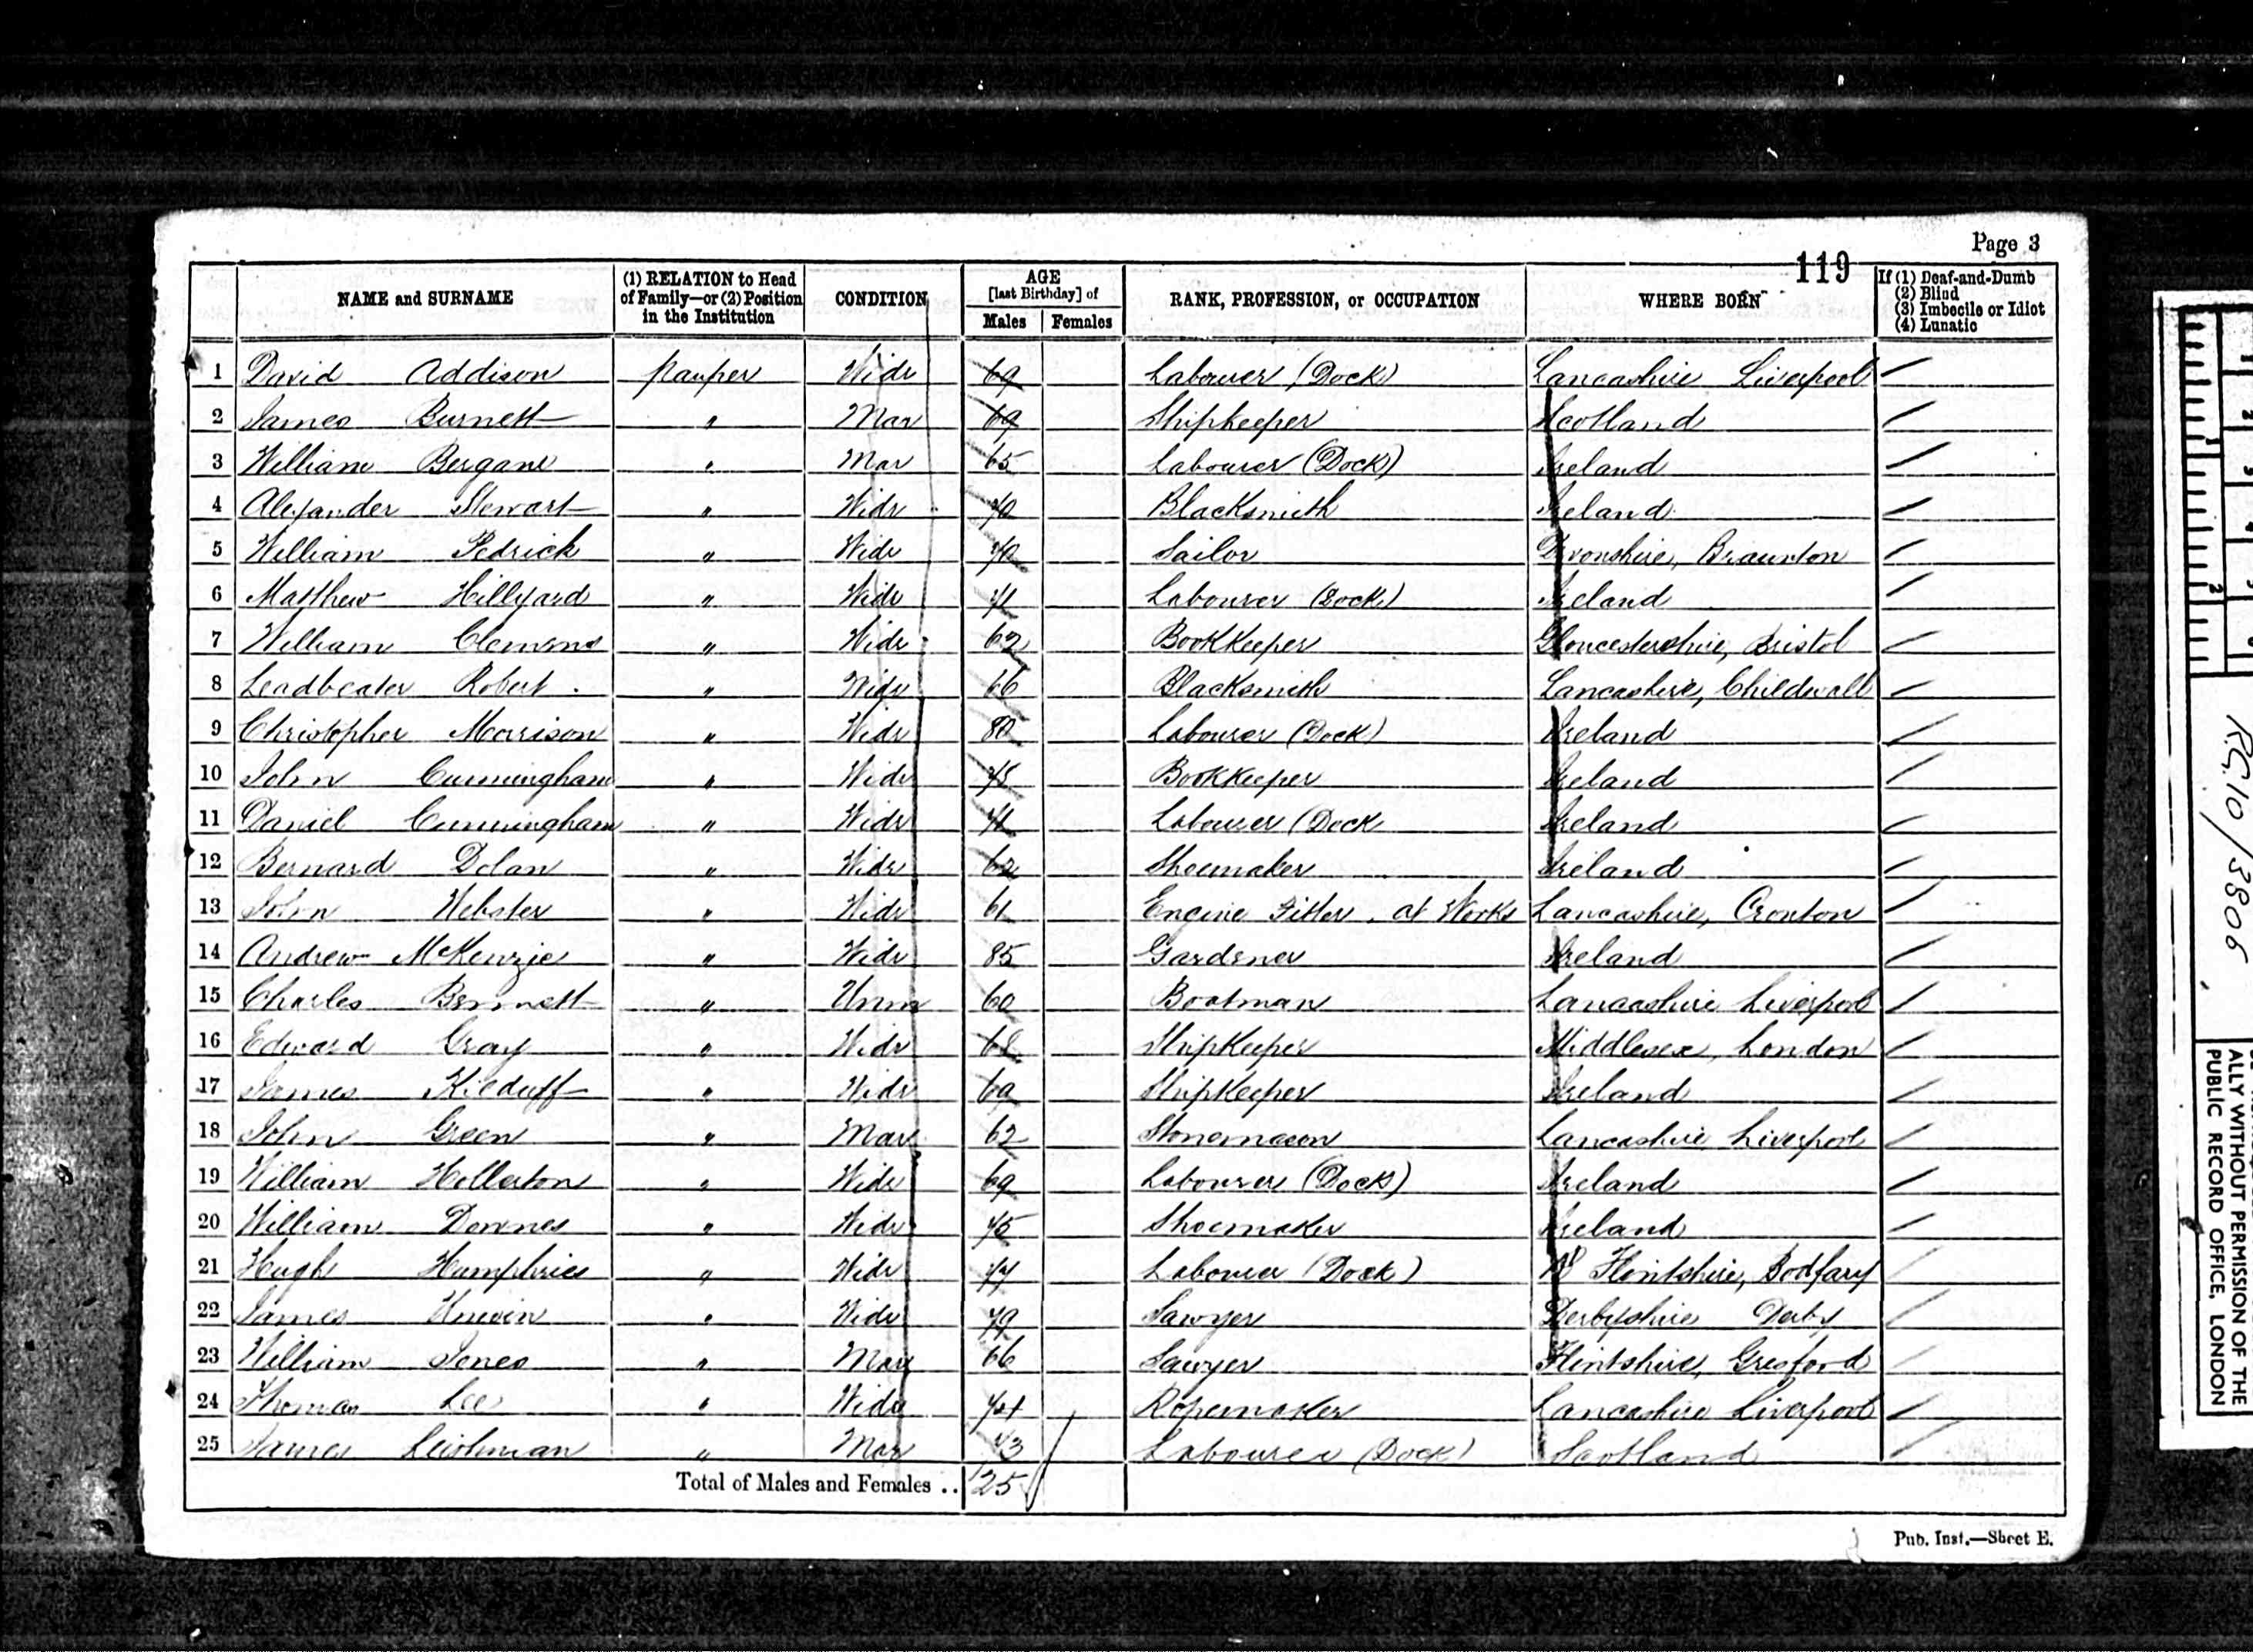 Page 3
119
NAME and SURNAME (1) RELATION to Head of Family—or (2) Position in the Institution CONDITION AGE [last Birthday] of Males Females RANK, PROFESSION, or OCCUPATION WHERE BORN If (1) Deaf-and-Dumb (2) Blind (3) Imbecile or Idiot (4) Lunatic
1 David Addison pauper Widr 69 Labourer (Dock) Lancashire Liverpool
2 James Burnett " Mar 69 Shipkeeper Scotland
3 William Bergane " Mar 65 Labourer (Dock) Ireland
4 Alexander Stewart " Widr 70 Blacksmith Ireland
5 William Pedrick " Widr 70 Sailor Devonshire, Braunton
6 Matthew Hillyard " Widr 71 Labourer (Dock) Ireland
7 William Clemens " Widr 62 Bookkeeper Gloucestershire, Bristol
8 Leadbeater Robert " Widr 66 Blacksmith Lancashire, Childwall
9 Christopher Morrison " Widr 80 Labourer (Dock) Ireland
10 John Cunningham " Widr 75 Bookkeeper Ireland
11 Daniel Cunningham " Widr 71 Labourer (Dock Ireland
12 Bernard Dolan " Widr 62 Shoemaker Ireland
13 John Webster " Widr 61 Engine Fitter, at Works Lancashire, Cronton
14 Andrew McKenzie " Widr 85 Gardener Ireland
15 Charles Bennett " Unm 60 Boatman Lancashire Liverpool
16 Edward Gray " Widr 68 Shipkeeper Middlesex, London
17 James Kilduff " Widr 69 Shipkeeper Ireland
18 John Green " Mar 62 Stonemason Lancashire Liverpool
19 William Hollerton " Widr 69 Labourer (Dock) Ireland
20 William Downes " Widr 75 Shoemaker Ireland
21 Hugh Humphries " Widr 77 Labourer (Dock) Flintshire, Bodfary
22 James Unwin " Widr 79 Sawyer Derbyshire Derby
23 William Jones " Mar 66 Sawyer Flintshire, Gresford
24 Thomas Lee " Widr 74 Ropemaker Lancashire Liverpool
25 James Leishman " Mar 73 Labourer (Dock) Scotland
Total of Males and Females .. 25
Pub. Inst.—Sheet E.
RG.10/3806
ALLY WITHOUT PERMISSION OF THE
PUBLIC RECORD OFFICE, LONDON